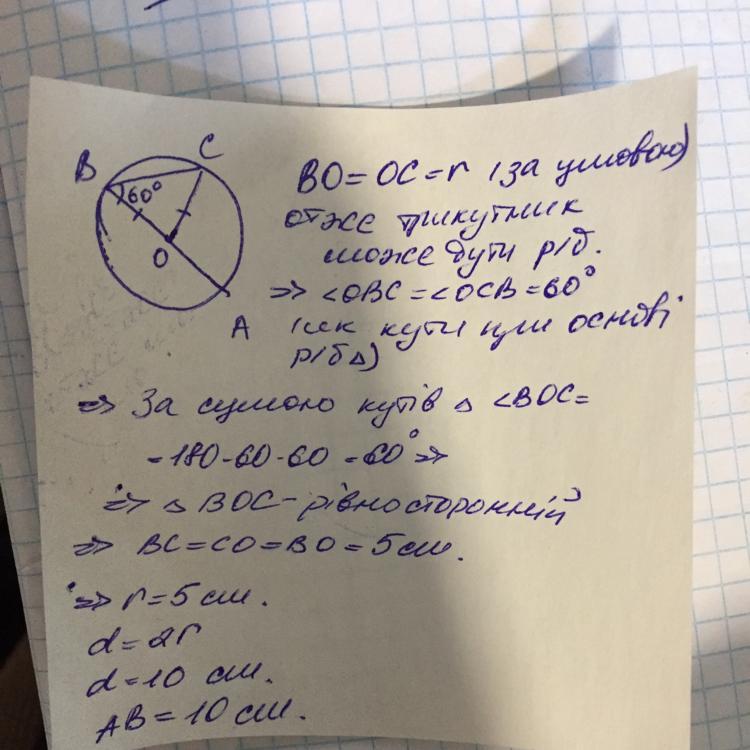 B
C
60°
O
A
BO = OC = r (за умовою)
отже трикутник
може бути р/б.
=> ∠OBC = ∠OCB = 60°
(як кути при основі
р/б △)
=> За сумою кутів △ ∠BOC =
= 180 - 60 - 60 = 60° =>
=> △ BOC - рівносторонній
=> BC = CO = BO = 5 см.
=> r = 5 см.
d = 2r
d = 10 см.
AB = 10 см.